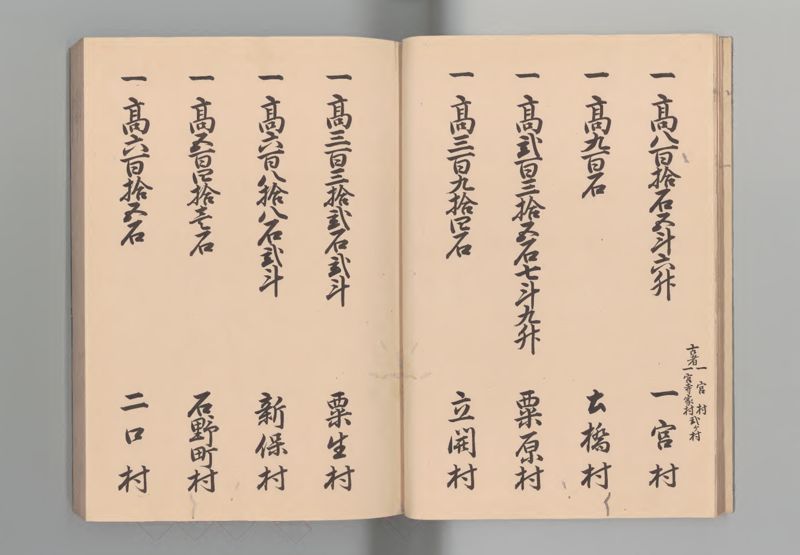 一 高八百拾石五斗六升
古者一宮村
一宮寺家村弐ヶ村
一宮村
一 高九百石
土橋村
一 高弐百三拾五石七斗九升
粟原村
一 高三百九拾四石
立開村
一 高三百三拾弐石弐斗
粟生村
一 高六百八拾八石弐斗
新保村
一 高五百四拾壱石
石野町村
一 高六百拾五石
二口村